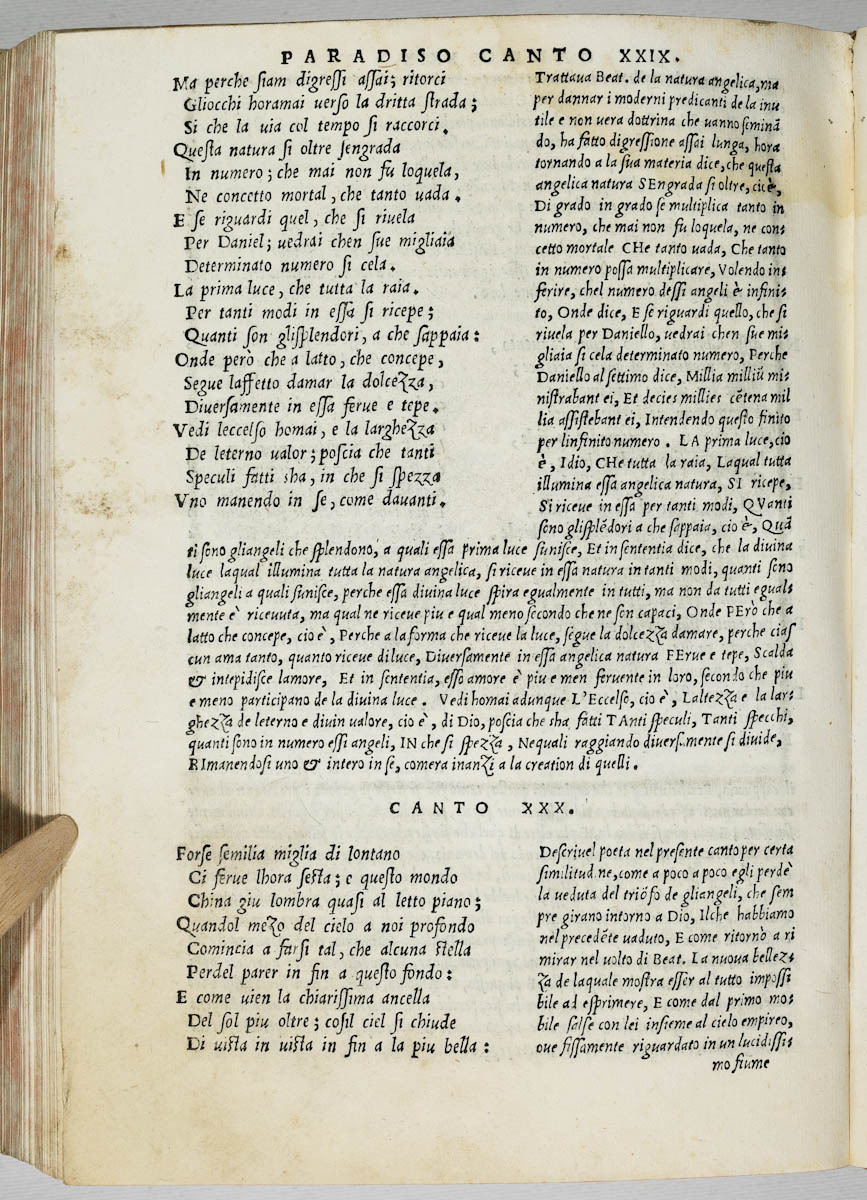 PARADISO CANTO XXIX.
Ma perche siam digressi assai; ritorci
Gliocchi horamai uerso la dritta strada;
Si che la uia col tempo si raccorci.
Questa natura si oltre sengrada
In numero; che mai non fu loquela,
Ne concetto mortal, che tanto uada.
E se riguardi quel, che si riuela
Per Daniel; uedrai chen sue migliaia
Determinato numero si cela.
La prima luce, che tutta la raia.
Per tanti modi in essa si ricepe;
Quanti son glisplendori, a che sappaia:
Onde però che a latto, che concepe,
Segue laffetto damar la dolcezza,
Diuersamente in essa ferue e tepe.
Vedi leccelso homai, e la larghezza
De leterno ualor; poscia che tanti
Speculi fatti sha, in che si spezza
Vno manendo in se, come dauanti.
Trattaua Beat. de la natura angelica, ma
per dannar i moderni predicanti de la inu
tile e non uera dottrina che uanno seminā
do, ha fatto digressione assai lunga, hora
tornando a la sua materia dice, che questa
angelica natura SEngrada si oltre, cio è,
Di grado in grado se multiplica tanto in
numero, che mai non fu loquela, ne con-
cetto mortale CHe tanto uada, Che tanto
in numero possa multiplicare, Volendo in-
ferire, chel numero dessi angeli è infini-
to, Onde dice, E se riguardi quello, che si
riuela per Daniello, uedrai chen sue mi-
gliaia si cela determinato numero, Perche
Daniello al settimo dice, Millia milliū mi-
nistrabant ei, Et decies millies cētena mil
lia assistebant ei, Intendendo questo finito
per linfinito numero. LA prima luce, cio
è, Idio, CHe tutta la raia, Laqual tutta
illumina essa angelica natura, SI ricepe,
Si riceue in essa per tanti modi, QVanti
sono glisplēdori a che sappaia, cio è, Quā
ti sono gliangeli che splendono, a quali essa prima luce sunisce, Et in sententia dice, che la diuina
luce laqual illumina tutta la natura angelica, si riceue in essa natura in tanti modi, quanti sono
gliangeli a quali sunisce, perche essa diuina luce spira egualmente in tutti, ma non da tutti egual-
mente è riceuuta, ma qual ne riceue piu e qual meno secondo che ne son capaci, Onde PErò che a
latto che concepe, cio è, Perche a la forma che riceue la luce, segue la dolcezza damare, perche cias
cun ama tanto, quanto riceue di luce, Diuersamente in essa angelica natura FErue e tepe, Scalda
& intepidisce lamore, Et in sententia, esso amore è piu e men feruente in loro, secondo che piu
e meno participano de la diuina luce. Vedi homai adunque L'Eccelso, cio è, Laltezza e la lar-
ghezza de leterno e diuin ualore, cio è, di Dio, poscia che sha fatti TAnti speculi, Tanti specchi,
quanti sono in numero essi angeli, IN che si spezza, Nequali raggiando diuersamente si diuide,
RImanendosi uno & intero in se, comera inanzi a la creation di quelli.
CANTO XXX.
Forse semilia miglia di lontano
Ci ferue lhora sesta; e questo mondo
China giu lombra quasi al letto piano;
Quandol mezo del cielo a noi profondo
Comincia a farsi tal, che alcuna stella
Perdel parer in fin a questo fondo:
E come uien la chiarissima ancella
Del sol piu oltre; cosil ciel si chiude
Di uista in uista in fin a la piu bella:
Descriuel poeta nel presente canto per certa
similitudine, come a poco a poco egli perdè
la ueduta del triōfo de gliangeli, che sem
pre girano intorno a Dio, Ilche habbiamo
nel precedēte uaduto, E come ritornò a ri
mirar nel uolto di Beat. La nuoua bellez-
za de laquale mostra esser al tutto impossi
bile ad esprimere, E come dal primo mo-
bile salse con lei insieme al cielo empireo,
oue fissamente riguardato in un lucidissi-
mo fiume